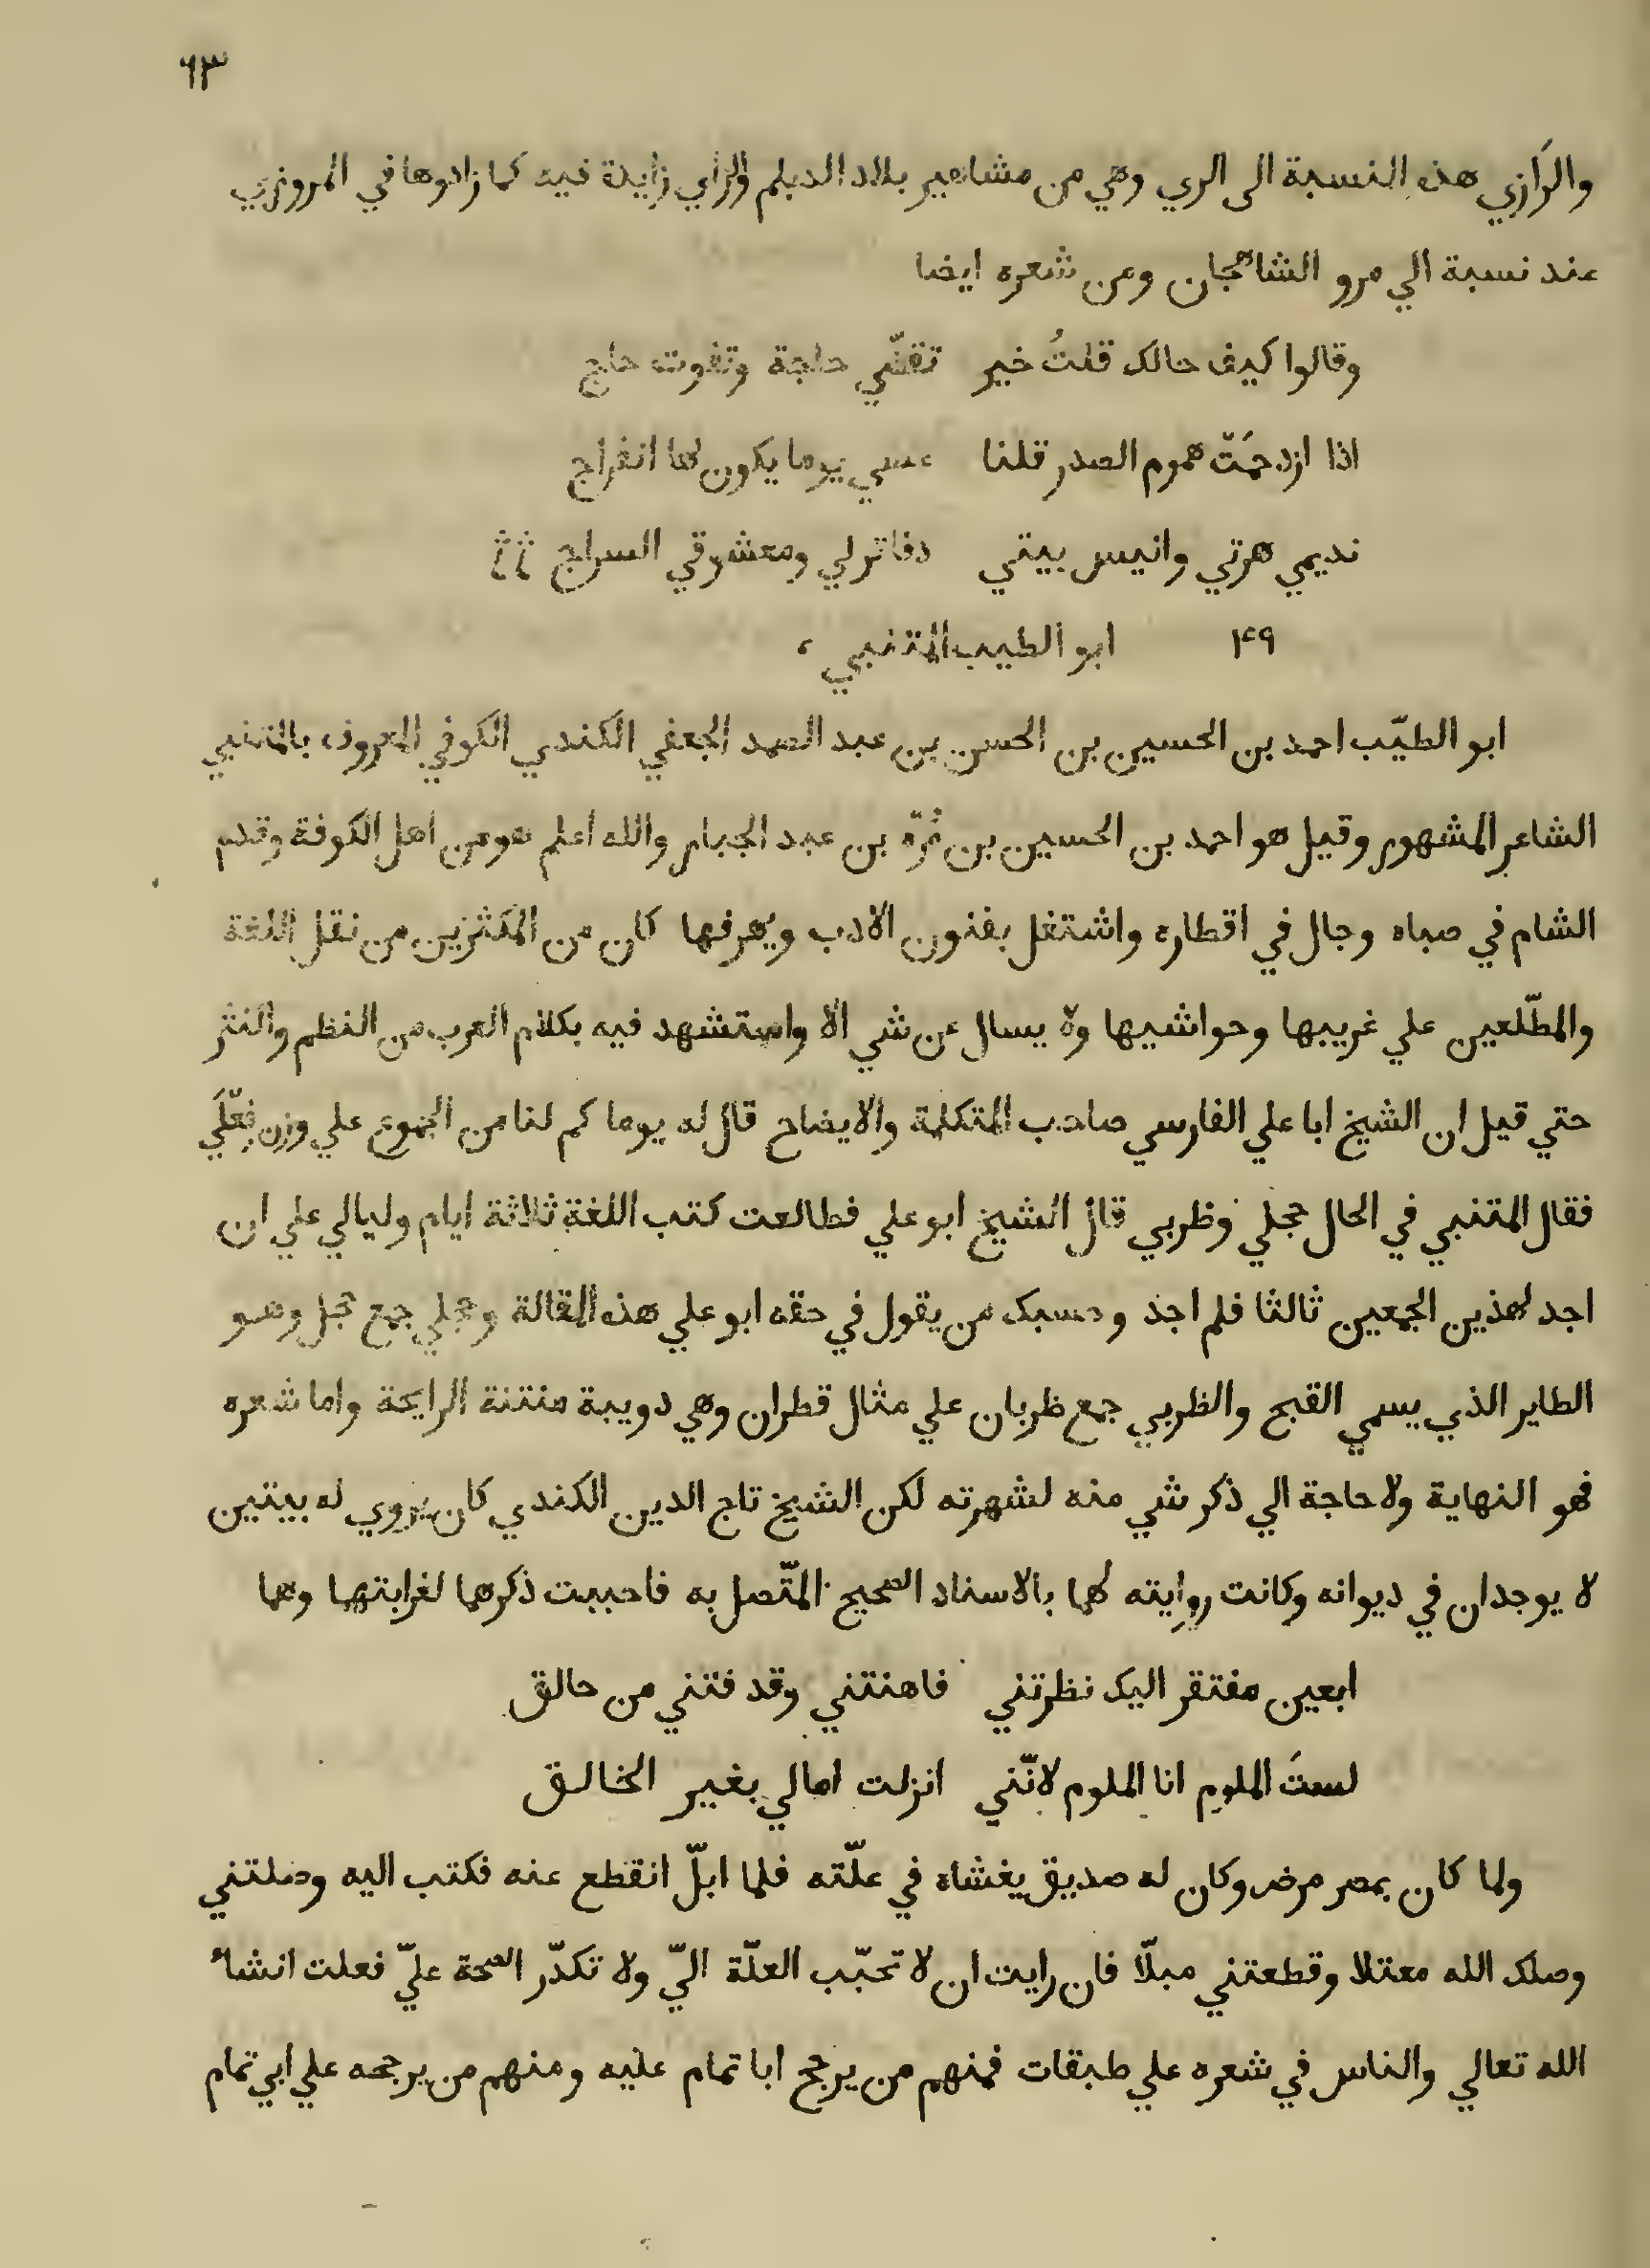 ٦٣
والرَازي هذه النسبة الى الري وهي من مشاهير بلاد الديلم والزاي زايدة فيه كما زادوها في المروزي
عند نسبة الي مرو الشاهجان ومن شعره ايضا
وقالوا كيف حالك قلتُ خير تقضّي حاجة وتفوت حاج
اذا ازدحمَتْ هموم الصدر قلنا عسي يوما يكون لها انفراج
نديمي هرتي وانيس بيتي دفاتر لي ومعشوقي السراج
٤٩ ابو الطيب المتنبي
ابو الطيّب احمد بن الحسين بن الحسن بن عبد الصمد الجعفي الكندي الكوفي المعروف بالمتنبي
الشاعر المشهور وقيل هو احمد بن الحسين بن مُرّة بن عبد الجبار والله اعلم هو من اهل الكوفة وقدم
الشام في صباه وجال في اقطاره واشتغل بفنون الادب ويهرفها كان من المكثرين من نقل اللغة
والمطّلعين علي غريبها وحواشيها ولا يسال عن شي الا واستشهد فيه بكلام العرب من النظم والنثر
حتي قيل ان الشيخ ابا علي الفارسي صاحب المتكلمة والايضاح قال له يوما كم لنا من الجموع علي وزن فِعْلَي
فقال المتنبي في الحال حجلي وظربي قال الشيخ ابو علي فطالعت كتب اللغة ثلاثة ايام وليالي علي ان
اجد لهذين الجمعين ثالثا فلم اجد وحسبك من يقول في حقه ابو علي هذه المقالة وحجلي جمع حجل وهو
الطاير الذي يسمي القبج والظربي جمع ظربان علي مثال قطران وهي دويبة منتنة الرايحة واما شعره
فهو النهاية ولا حاجة الي ذكر شي منه لشهرته لكن الشيخ تاج الدين الكندي كان يروي له بيتين
لا يوجدان في ديوانه وكانت روايته لهما بالاسناد الصحيح المتّصل به فاحببت ذكرهما لغرابتهما وهما
ابعين مفتقر اليك نظرتني فاهنتني وقد فتني من حالق
لستَ الملوم انا الملوم لانّني انزلت امالي بغير الخالق
ولما كان بمصر مرض وكان له صديق يغشاه في علّته فلما ابلّ انقطع عنه فكتب اليه وصلتني
وصلك الله معتلا وقطعتني مبلّا فان رايت ان لا تحبّب العلّة اليّ ولا تكدّر الصحة عليّ فعلت انشاء
الله تعالي والناس في شعره علي طبقات فمنهم من يرجح ابا تمام عليه ومنهم من يرجحه علي ابي تمام